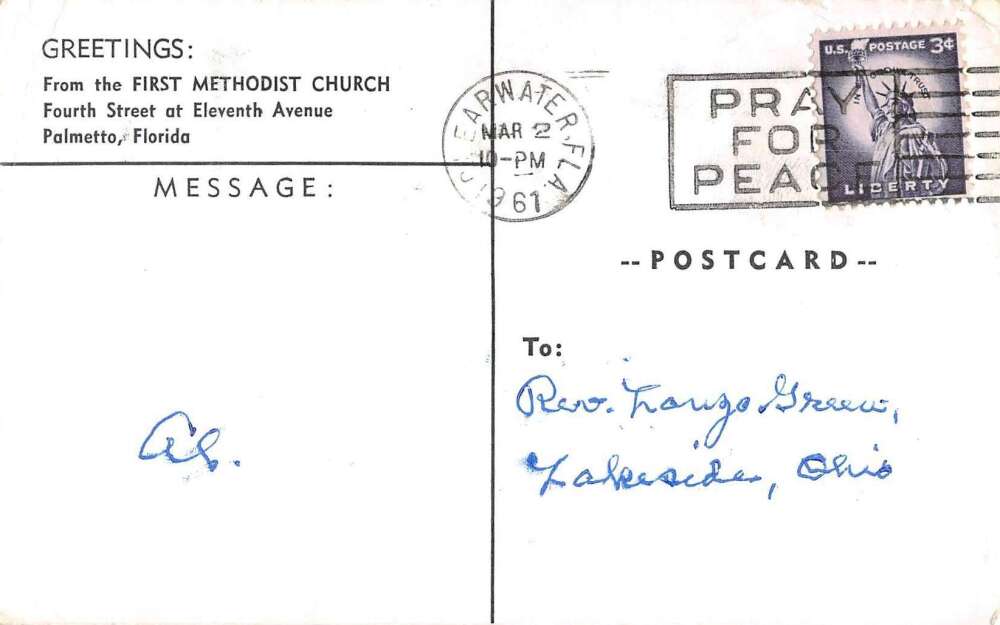 GREETINGS:
From the FIRST METHODIST CHURCH
Fourth Street at Eleventh Avenue
Palmetto, Florida
MESSAGE:
CLEARWATER, FLA.
MAR 2
10-PM
1961
PRAY
FOR
PEACE
U.S. POSTAGE 3¢
IN GOD WE TRUST
LIBERTY
--POSTCARD--
To:
Rev. Lonzo Green,
Lakeside, Ohio